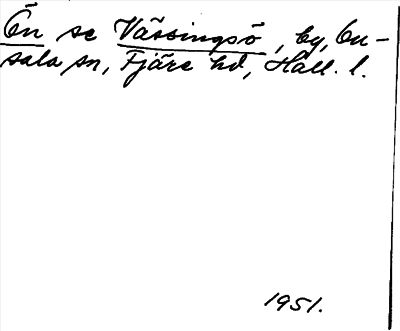 Ön se Vässingsö, by, On-
sala sn, Fjäre hd, Hall. l.
1951.